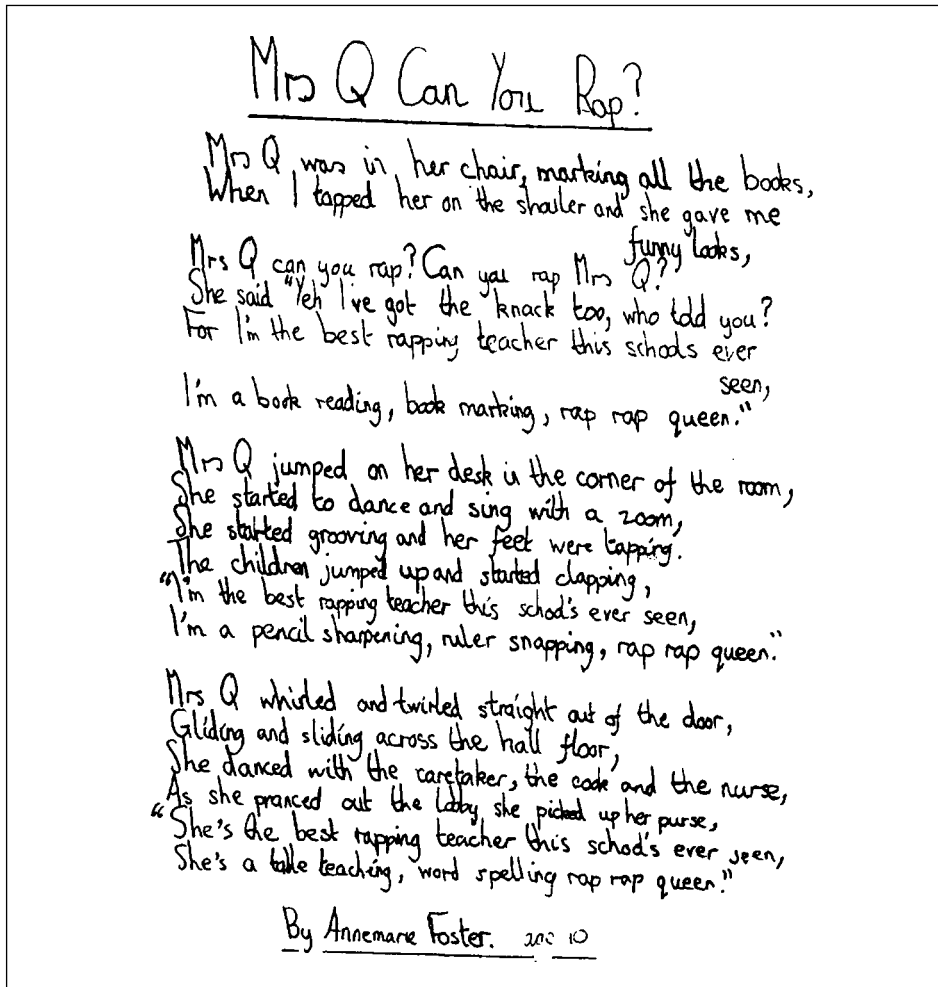 Mrs Q Can You Rap?
Mrs Q was in her chair, marking all the books,
When I tapped her on the shouler and she gave me
funny looks,
Mrs Q can you rap? Can you rap Mrs Q?
She said "Yeh I've got the knack too, who told you?
For I'm the best rapping teacher this schools ever
seen,
I'm a book reading, book marking, rap rap queen."
Mrs Q jumped on her desk in the corner of the room,
She started to dance and sing with a zoom,
She started grooving and her feet were tapping.
The children jumped up and started clapping,
"I'm the best rapping teacher this school's ever seen,
I'm a pencil sharpening, ruler snapping, rap rap queen."
Mrs Q whirled and twirled straight out of the door,
Gliding and sliding across the hall floor,
She danced with the caretaker, the cook and the nurse,
As she pranced out the lobby she picked up her purse,
"She's the best rapping teacher this school's ever seen,
She's a teaching, word spelling rap rap queen."
By Annemarie Foster. 10